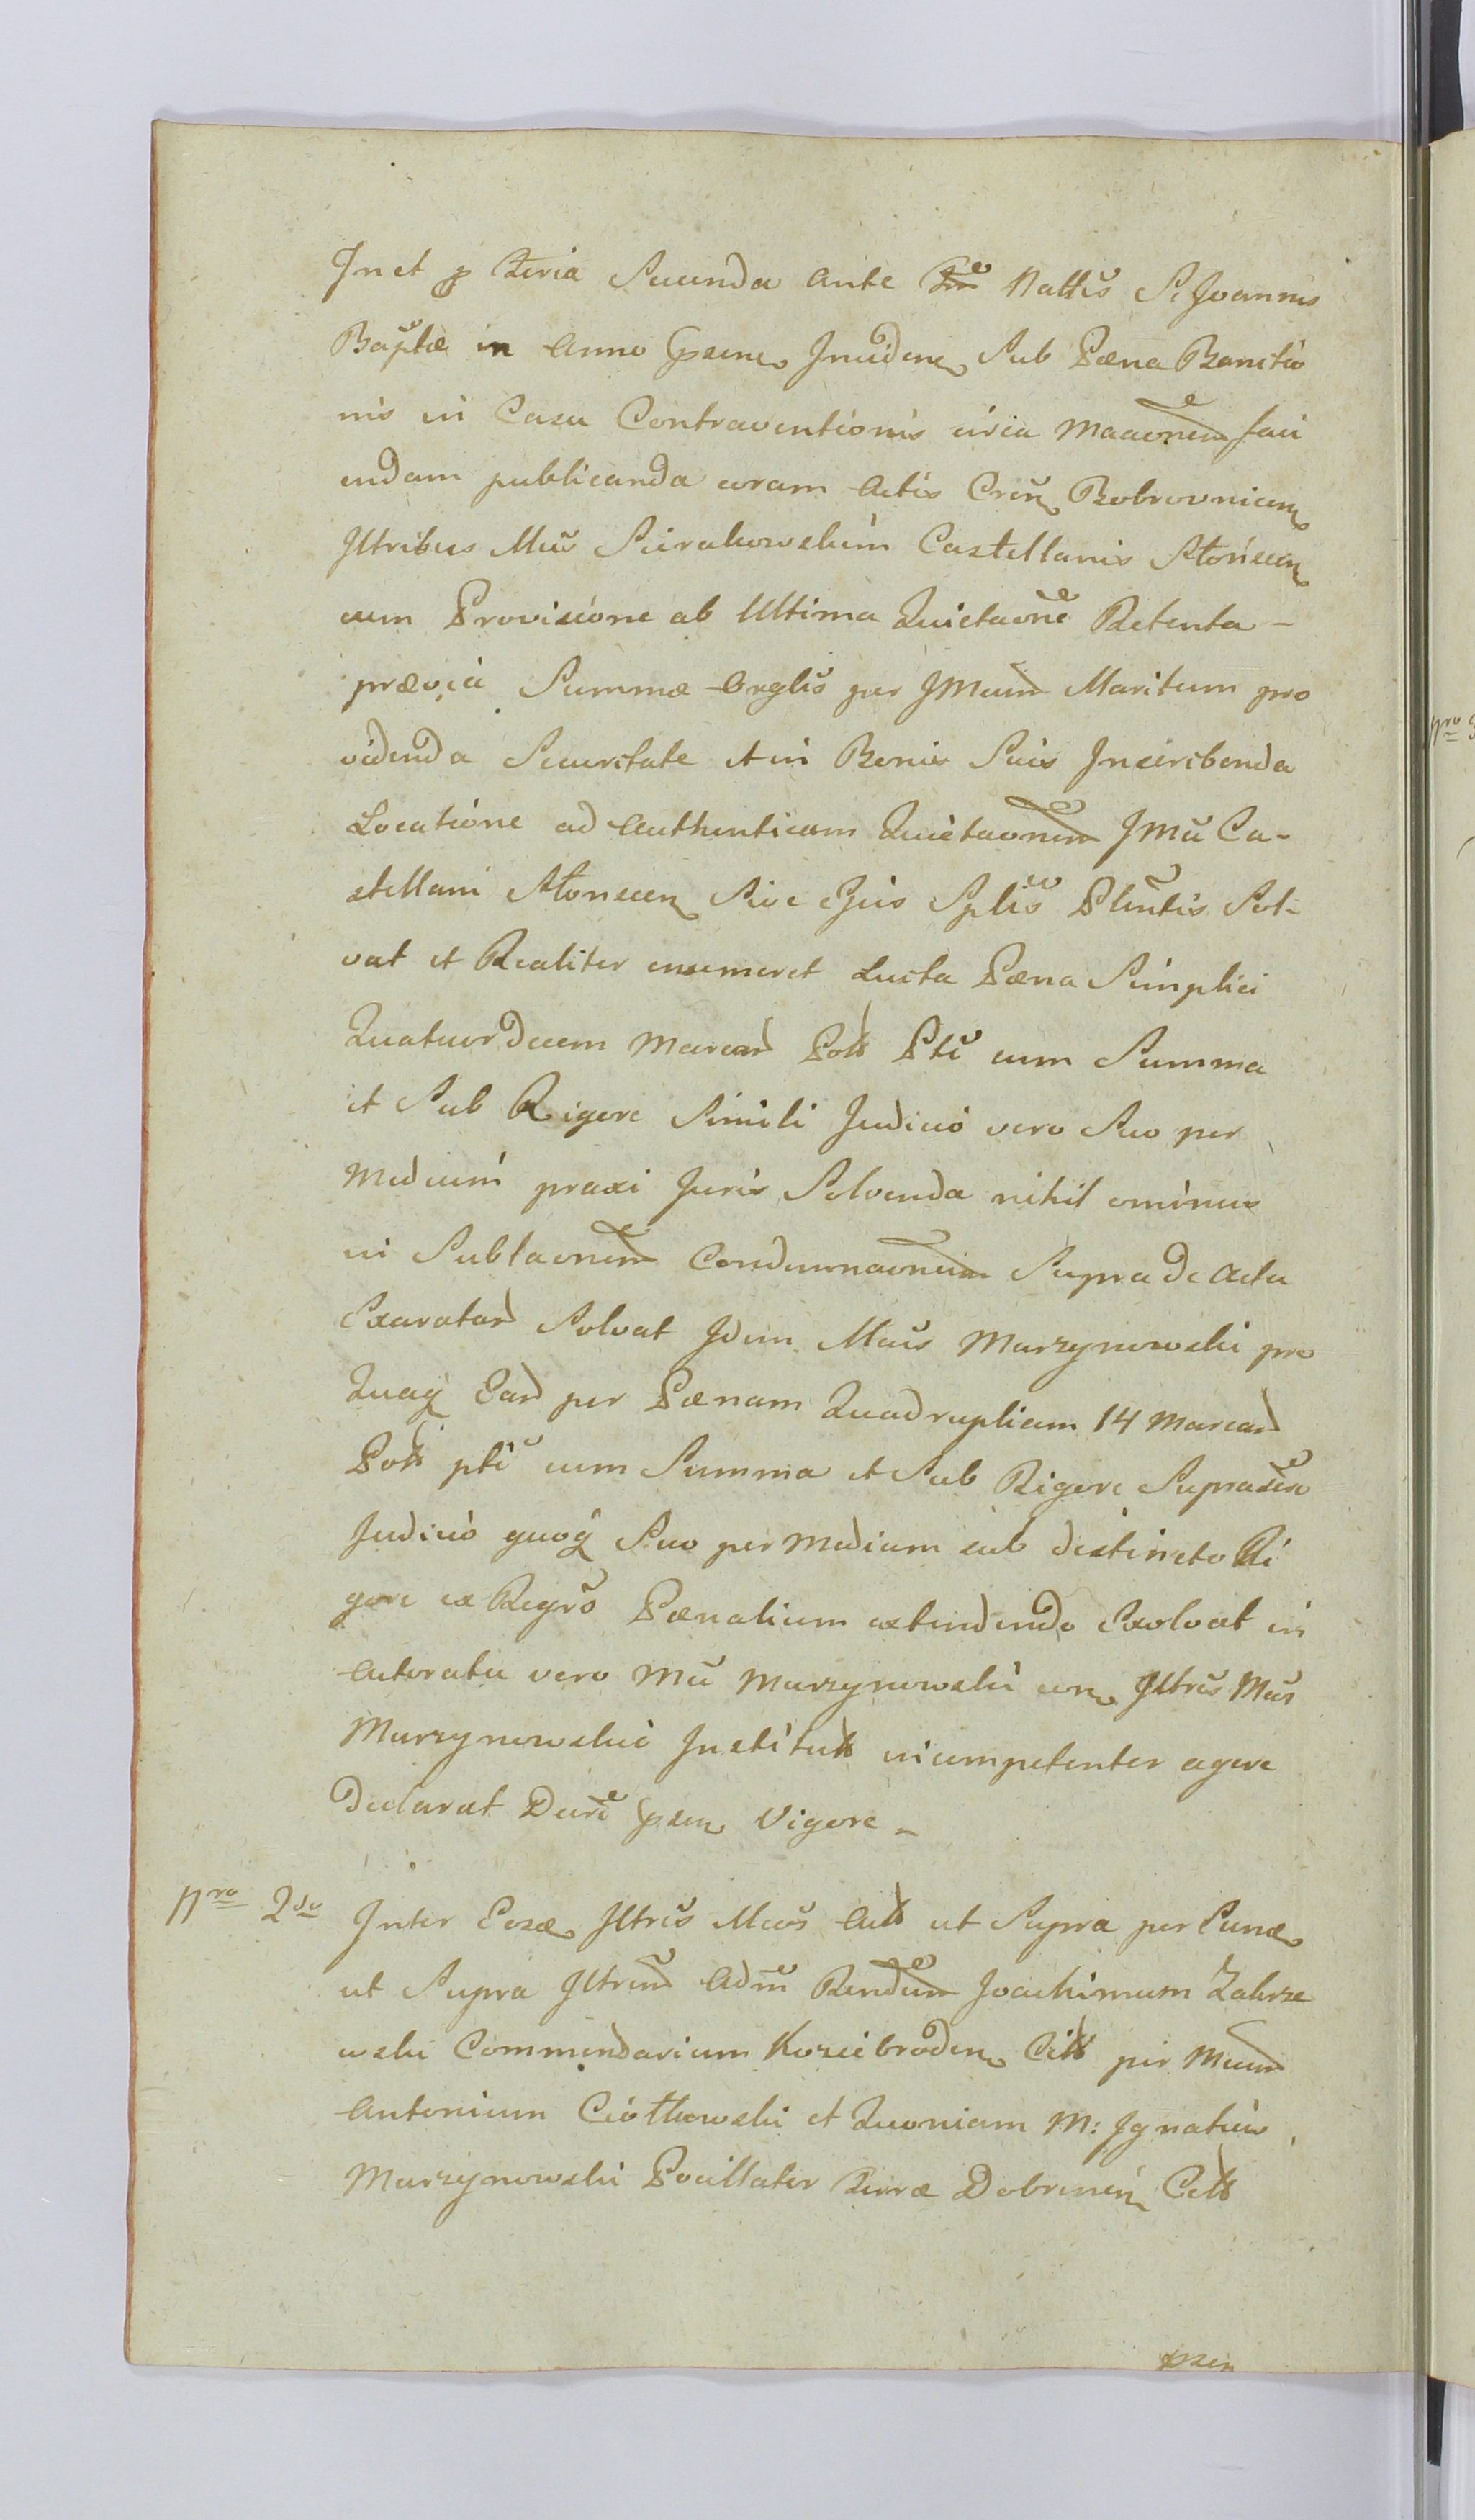 In et p Feria Secunda ante Ftū Nattis S. Joannis
Baptæ in Anno Gpsene Inciden Sub Pæna Bannitio
nis in Casu Contraventionis circa Maaonem faci
endam publicanda coram Actis Crēn Bobrovnicen
Illtribus Mū Sierakowskim Castellanis Słonscen
cum Provisione ab Ultima Quietaone Retenta -
prævia Summæ Orglis per JMum Maritum pro
videnda Securitate et in Bonis Suis Inscribenda
Locatione ad Authenticam Quietaonem JMū Ca-
stellani Słonscen Sive Ejus Splis Plentis Sol-
vat et Realiter enumeret Lucta Pæna Simplici
Quatuordecem Marcar Poll Pti cum Summa
et Sub Rigore Simili Judicio vero Suo per
Medium praxi Juris Solvenda nihil ominus
in Sublaonem Condemnaonum Supra de Actu
Exaratar Solvat Idem Mcus Murzynowski pro
Quaq Ear per Pænam Quadruplicem 14 Marcar
Poll pti cum Summa et Sub Rigore Suprascr
Judicio quoq Suo per Medium sub districto Ri
gore ex Regro Pænalium extendendo Exolvat in
Actoratu vero Mū Murzynowski con Illtris Mcus
Murzynowskie Institut incompetenter agere
Declarat Dcuri psen Vigore -
Nro 2do Inter Eosæ Illtris Mcos Act ut Supra per Punæ
ut Supra Illtrem Adm Rendum Joachimum Zakrze
wski Commendarium Koziebroden Citt per Mcum
Antonium Ciołkowski et Quoniam M: Ignatius
Murzynowski Pocillator Terræ Dobrinen Citt
psen
Nro 3